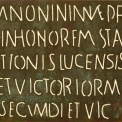 IANONINIMAEDP
INHONOREMSTA
TIONISLUCENSIS
ETVICTORIORM
SECUNDIETVIC